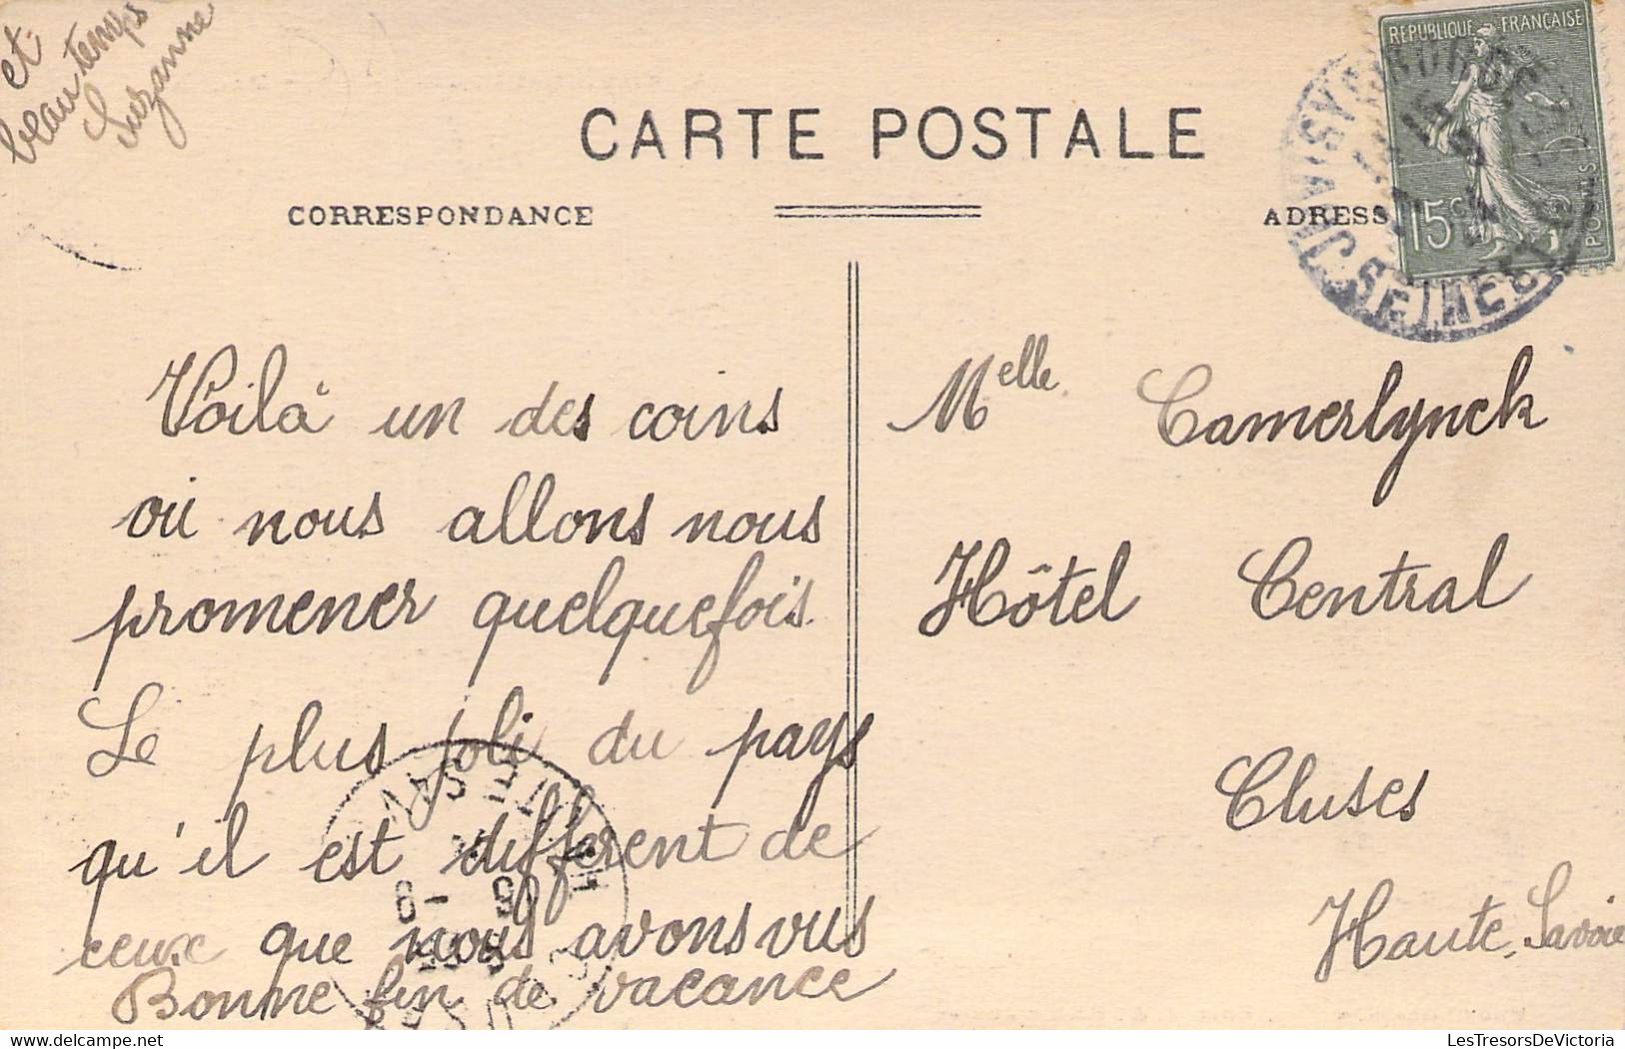 et
beau temps
Suzanne
REPUBLIQUE FRANÇAISE
15c
POSTES
CARTE POSTALE
CORRESPONDANCE
ADRESS
Voilà un des coins
où nous allons nous
promener quelquefois.
Le plus joli du pays
qu'il est différent de
ceux que nous avons vus
Bonne fin de vacance
Melle Camerlynck
Hôtel Central
Cluses
Haute-Savoie
LesTresorsDeVictoria